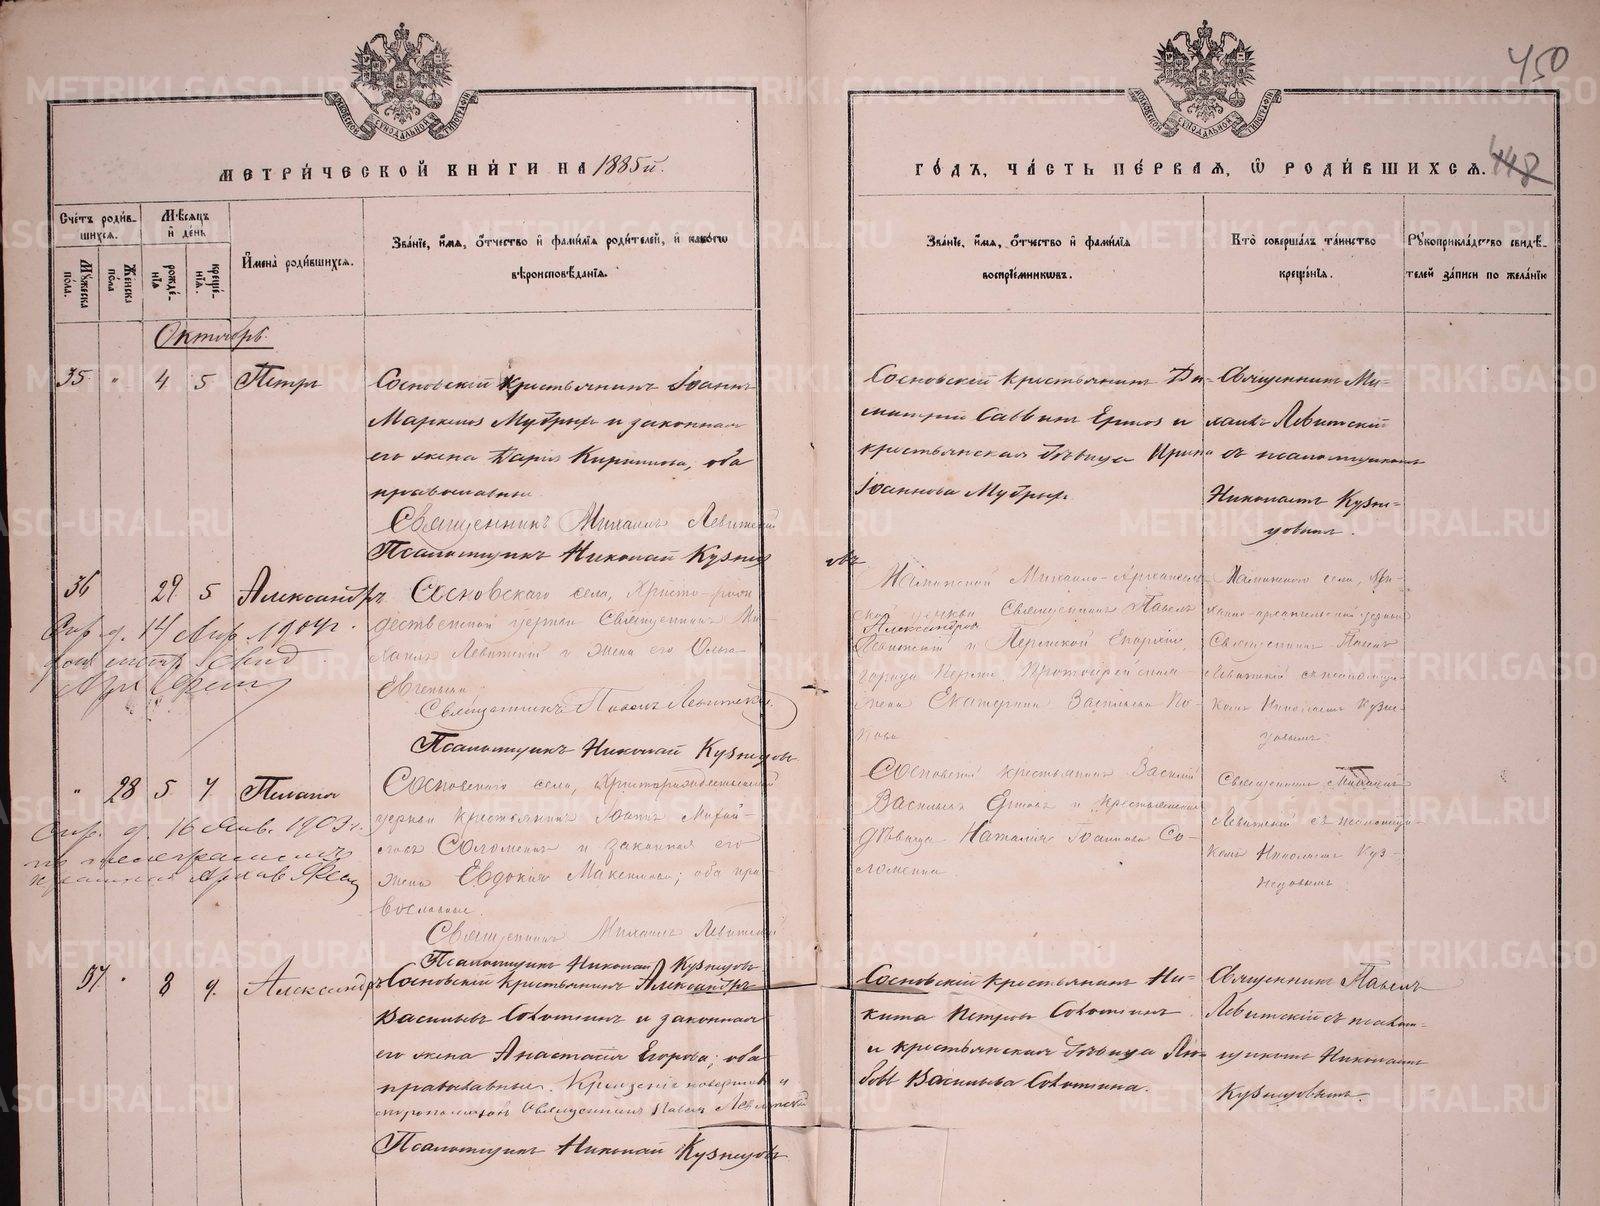 450
МЕТРИ́ЧЕСКОЙ КНИ́ГИ НА 1885й.
ГО́ДЪ, ЧА́СТЬ ПЕ́РВАЯ, Ѿ РОДИ́ВШИХСѦ. 448
Сче́тъ роди́в-
шихсѧ.
Мѣ́сѧцъ
и҆ де́нь
И҆мена̀ роди́вшихсѧ.
Зва́нїе, и҆́мѧ, ѻ҆́тчество и҆ фами́лїѧ роди́телей, и҆ како́гѡ
вѣроисповѣ́данїѧ.
Зва́нїе, и҆́мѧ, ѻ҆́тчество и҆ фами́лїѧ
воспрїе́мникѡвъ.
Кто̀ соверша́лъ та́инство
креще́нїѧ.
Рꙋкоприкла́дство свидѣ́-
телей за́писи по жела́нїю
Мꙋ́жеска по́ла.
Же́нска по́ла
рожде́-нїѧ
креще́-нїѧ.
Октябрь.
35 " 4 5 Петръ
Сосновскій крестьянинъ Іоаннъ
Маркеловъ Мудрыхъ и законная
его жена Дарія Кириллова, оба
православные.
Священникъ Михаилъ Левитскій
Псаломщикъ Николай Кузнецовъ
Сосновскій крестьянинъ Ди-
митрій Саввинъ Ершовъ и
крестьянская дѣвица Ирина
Іоаннова Мудрыхъ.
Священникъ Ми-
хаилъ Левитскій
съ псаломщикомъ
Николаемъ Кузне-
цовымъ.
36 29 5 Александръ
Сосновскаго села, Христо-рож-
дественской церкви Священникъ Ми-
хаилъ Левитскій и жена его Ольга
Евгеньева
Священникъ Павелъ Левитскій.
Псаломщикъ Николай Кузнецовъ
14 Апр. 1904 г.
Священникъ Павелъ
Александровъ
Левитскій и Пермской Епархіи,
города Перми, Протоіерейская
жена Екатерина Васильева По-
пова
села, Ми-
хаило-архангельской церкви
Священникъ Павелъ
Левитскій съ псаломщи-
комъ Николаемъ Кузне-
цовымъ
" 28 5 7 Пелагія
Сосновскаго села, Христорождественской
церкви крестьянинъ Іоаннъ Михай-
ловъ Соломеинъ и законная его
жена Евдокія Максимова; оба пра-
вославные.
Священникъ Михаилъ Левитскій
Псаломщикъ Николай Кузнецовъ
16 Янв. 1903 г.
Сосновскій крестьянинъ Василій
Васильевъ Ершовъ и крестьянская
дѣвица Наталія Іоаннова Со-
ломеина.
Священникъ Михаилъ
Левитскій съ псаломщи-
комъ Николаемъ Куз-
нецовымъ
37 " 8 9 Александръ
Сосновскій крестьянинъ Александръ
Васильевъ Соломеинъ и законная
его жена Анастасія Егорова; оба
православные. Крещеніе совершилъ и
Священникъ Павелъ Левитскій
Псаломщикъ Николай Кузнецовъ
Сосновскій крестьянинъ Ни-
кита Петровъ Соломеинъ
и крестьянская дѣвица Лю-
бовь Васильева Соломеина.
Священникъ Павелъ
Левитскій съ псалом-
щикомъ Николаемъ
Кузнецовымъ.
METRIKI.GASO-URAL.RU